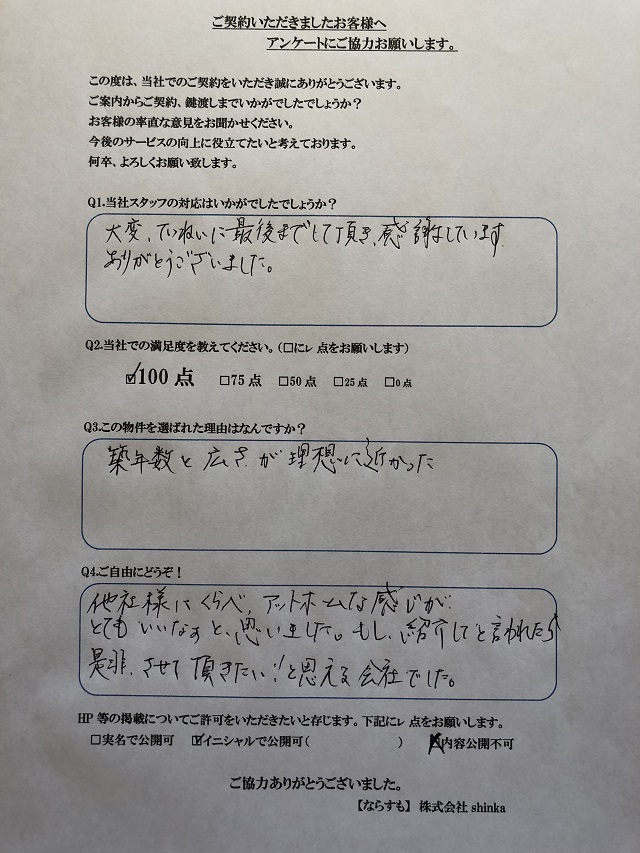 ご契約いただきましたお客様へ
アンケートにご協力お願いします。
この度は、当社でのご契約をいただき誠にありがとうございます。
ご案内からご契約、鍵渡しまでいかがでしたでしょうか？
お客様の率直な意見をお聞かせください。
今後のサービスの向上に役立てたいと考えております。
何卒、よろしくお願い致します。
Q1.当社スタッフの対応はいかがでしたでしょうか？
大変、ていねいに最後までして頂き、感謝しています
ありがとうございました。
Q2.当社での満足度を教えてください。（□にレ点をお願いします）
☑100点 □75点 □50点 □25点 □0点
Q3.この物件を選ばれた理由はなんですか？
築年数と広さが理想に近かった
Q4.ご自由にどうぞ！
他社様にくらべ、アットホームな感じが
とてもいいなぁと、思いました。もし、紹介してと言われたら
是非、させて頂きたい!と思える会社でした。
HP等の掲載についてご許可をいただきたいと存じます。下記にレ点をお願いします。
□実名で公開可 ☑イニシャルで公開可（ ） ☒内容公開不可
ご協力ありがとうございました。
【ならすも】 株式会社 shinka